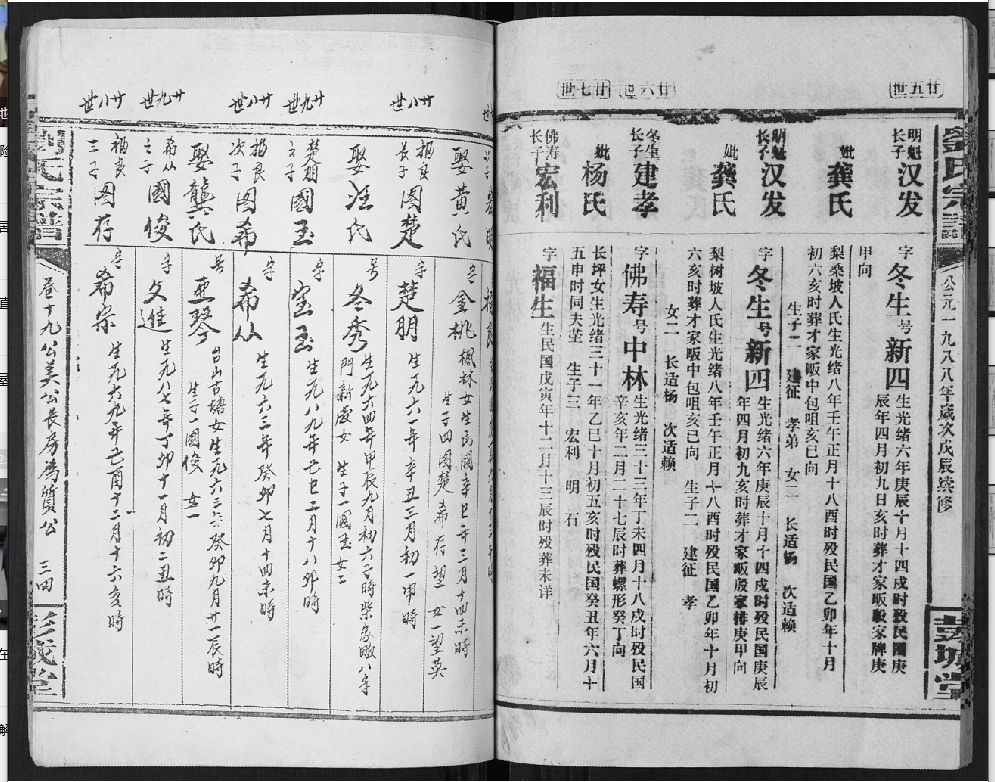 劉氏宗譜
公元一九八八年歲次戊辰续修
彭城堂
廿五世
明魁长子 汉发
字 冬生 号 新四 生光绪六年庚辰十月十四戌时殁民国庚辰年四月初九日亥时葬才家畈殷家牌庚甲向
妣 龚氏
梨桑坡人氏生光绪八年壬午正月十八酉时殁民国乙卯年十月初六亥时葬才家畈中包咀亥巳向
生子二 建征 孝弟 女二 长适杨 次适赖
明魁长子 汉发
字 冬生 号 新四 生光绪六年庚辰十月十四戌时殁民国庚辰年四月初九亥时葬才家畈殷家排庚甲向
妣 龚氏
梨树坡人氏生光绪八年壬午正月十八酉时殁民国乙卯年十月初六亥时葬才家畈中包咀亥巳向 生子二 建征 孝
女二 长适杨 次适赖
廿六
冬生长子 建孝
字 佛寿 号 中林 生光绪三十三年丁未四月十八戌时殁民国辛亥年二月二十七辰时葬螺形癸丁向
妣 杨氏
长坪女生光绪三十一年乙巳十月初五亥时殁民国癸丑年六月十五申时同夫茔 生子三 宏利 明 石
廿七世
佛寿长子 宏利
字 福生 生民国戊寅年十二月十三辰时殁葬未详
娶黄氏
名 金桃 枫林女生民國辛巳年三月十四未時
生子四 國楚 希 存 望 女一望英
廿八世
福良長子 國楚
字 楚朋 生一九六一年辛丑三月初一申時
娶汪氏
号 冬秀 生一九六四年甲辰九月初六子時
生子一國玉 女二
廿九世
楚朋之子 國玉
字 宝玉 生一九八九年己巳二月十八卯時
廿八世
福良次子 國希
字 希从 生一九六三年癸卯七月十四未時
娶龔氏
号 亜琴 台山古塘女生一九六三癸卯九月廿一辰時
生子一國俊 女一
廿九世
希从之子 國俊
字 文進 生一九八七年丁卯十一月初二丑時
廿八世
福良三子 國存
字 希宗 生一九六九年己酉十二月十六亥時
劉氏宗譜
卷十九公美公長房為質公 三四
彭城堂